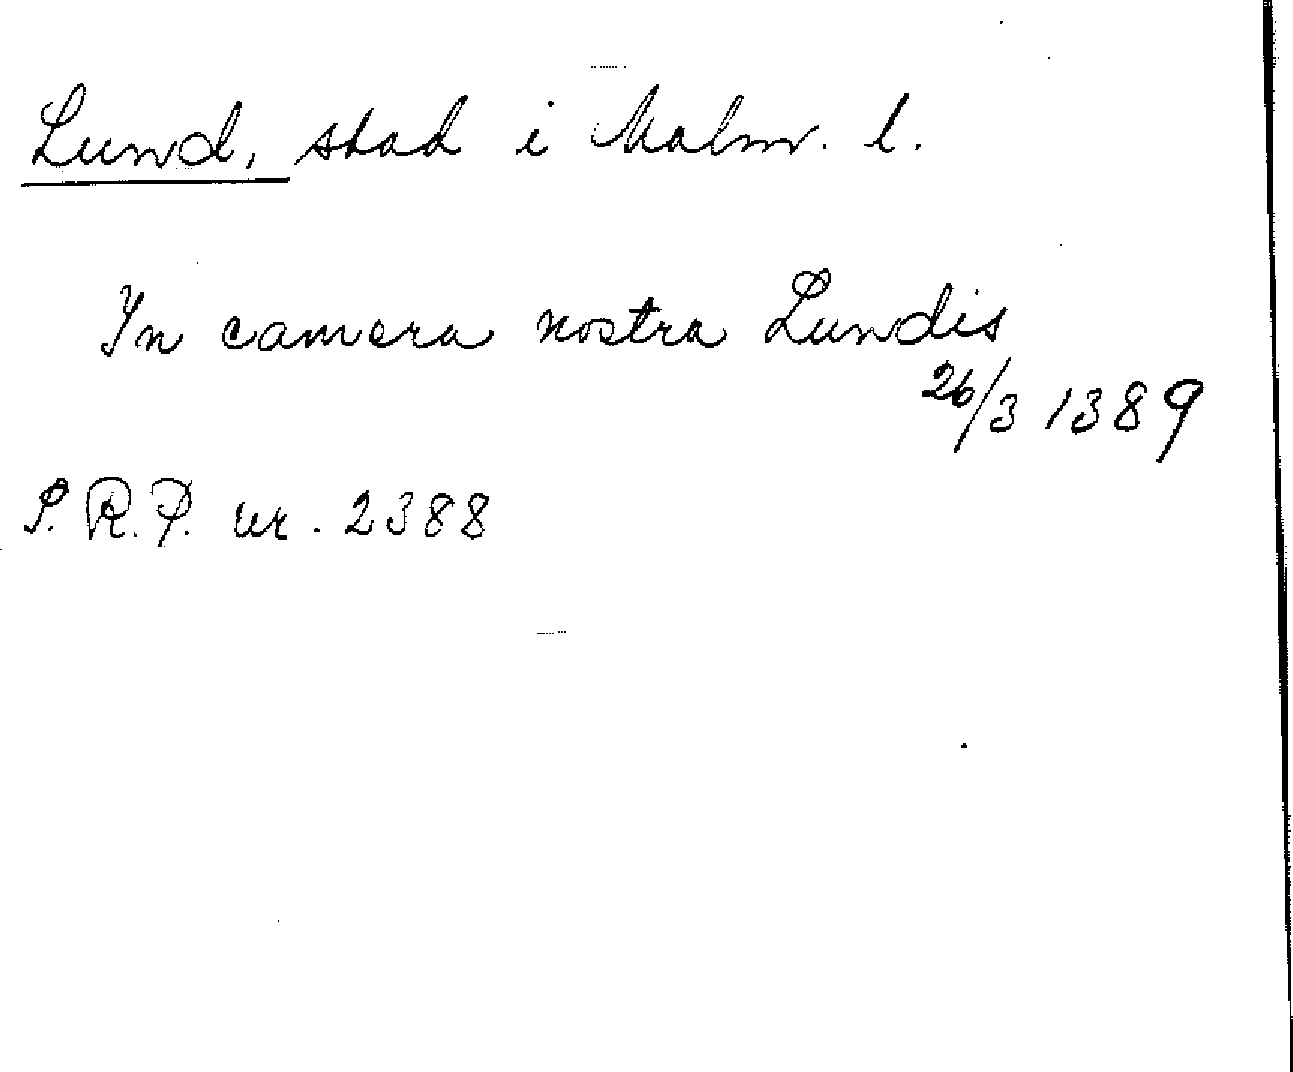 Lund, stad i Malm. l.
In camera nostra Lundis
26/3 1389
S. R. P. nr. 2388